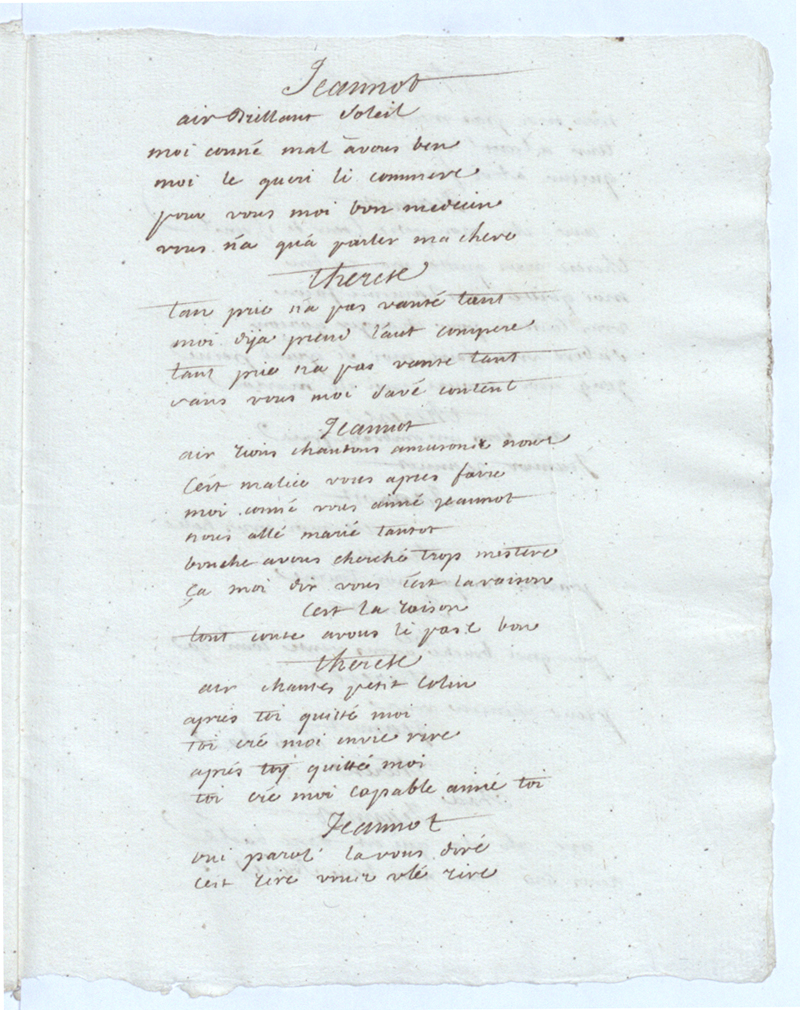 Jeannot
air Brillant Soleil
moi conné mal avous ben
moi le queri li commere
pour vous moi bon medecin
vous n'a qu'a parler ma chere
therese
tan prie n'a pas vanté tant
moi deja prend l'aut compere
tant prie n'a pas vante tant
vous moi d'avé content
Jeannot
air rions chantons amusons nous
C'est malice vous apres faire
moi conné vous aimé jeannot
nous allé marié tantot
bouche avous cherché trop mistere
ça moi dir vous c'est la raison
C'est la raison
tout conte avous li pas bon
therese
air chantes petit Colin
aprés toi quitté moi
toi cré moi envie rire
aprés toy quitté moi
toi cré moi capable aimé toi
Jeannot
oui parol la vous diré
c'est rire vous vlé rire